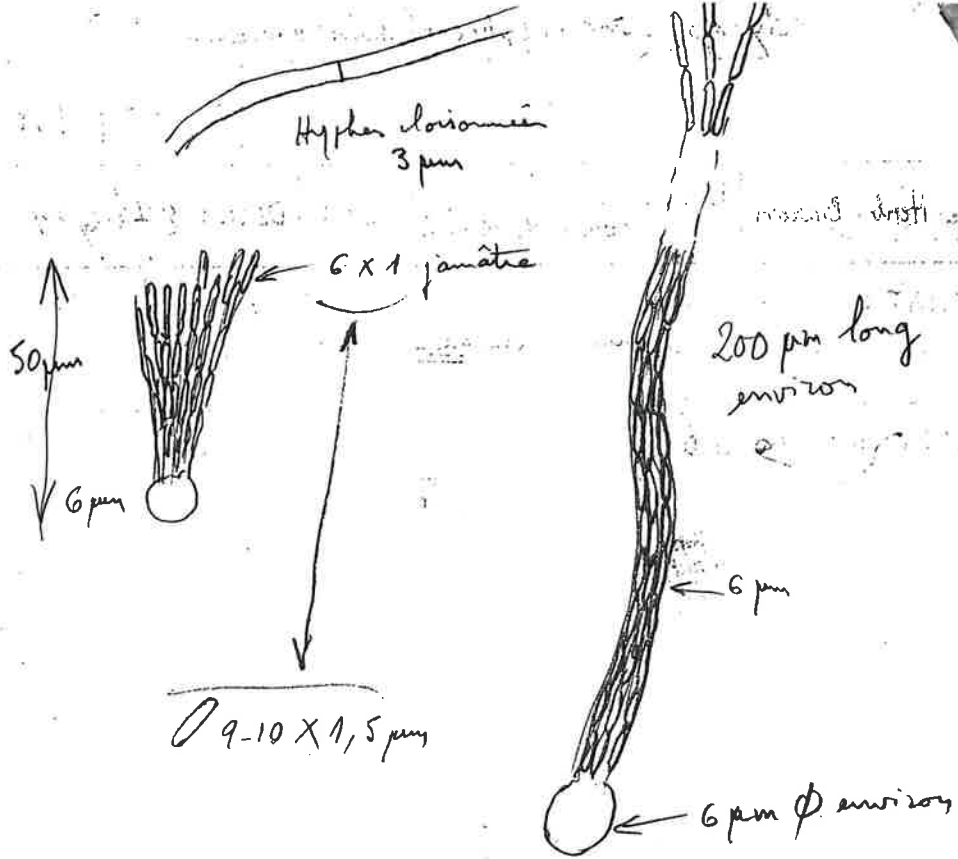 Hyphes cloisonnées
3 µm
6 X 1 jaunâtre
50 µm
6 µm
200 µm long
environ
6 µm
9-10 X 1,5 µm
6 µm ϕ environ
Herb.